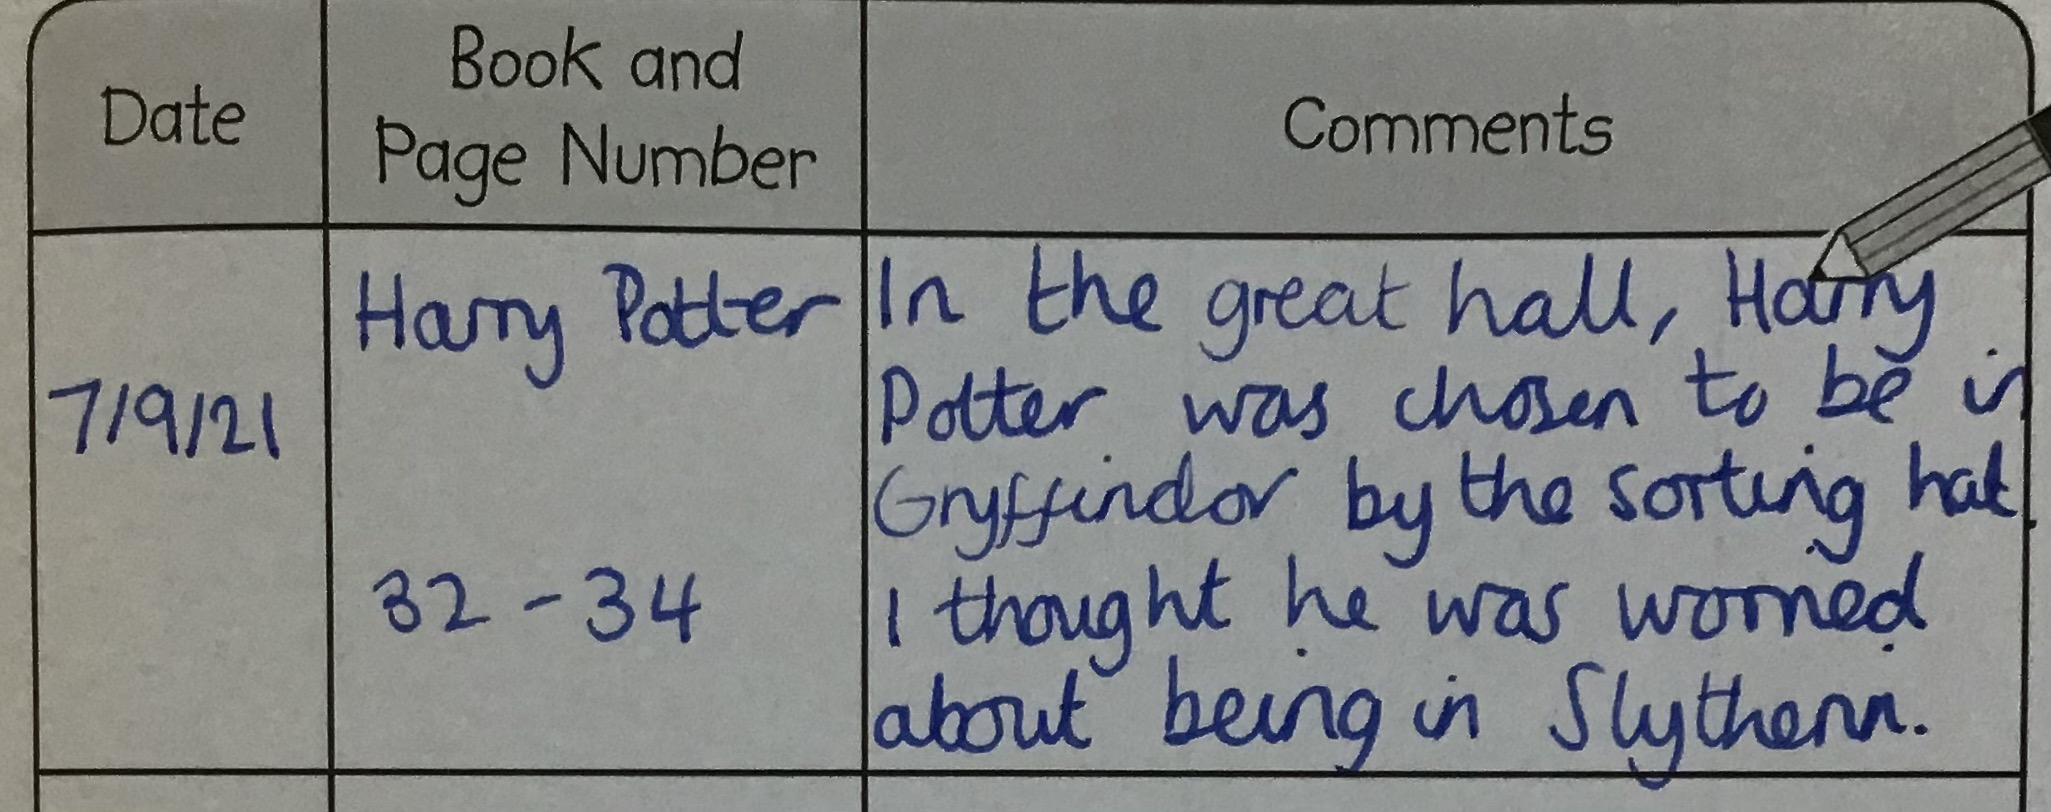 Date
Book and
Page Number
Comments
7/9/21
Harry Potter
32 - 34
In the great hall, Harry
Potter was chosen to be in
Gryffindor by the sorting hat.
I thought he was worried
about being in Slytherin.